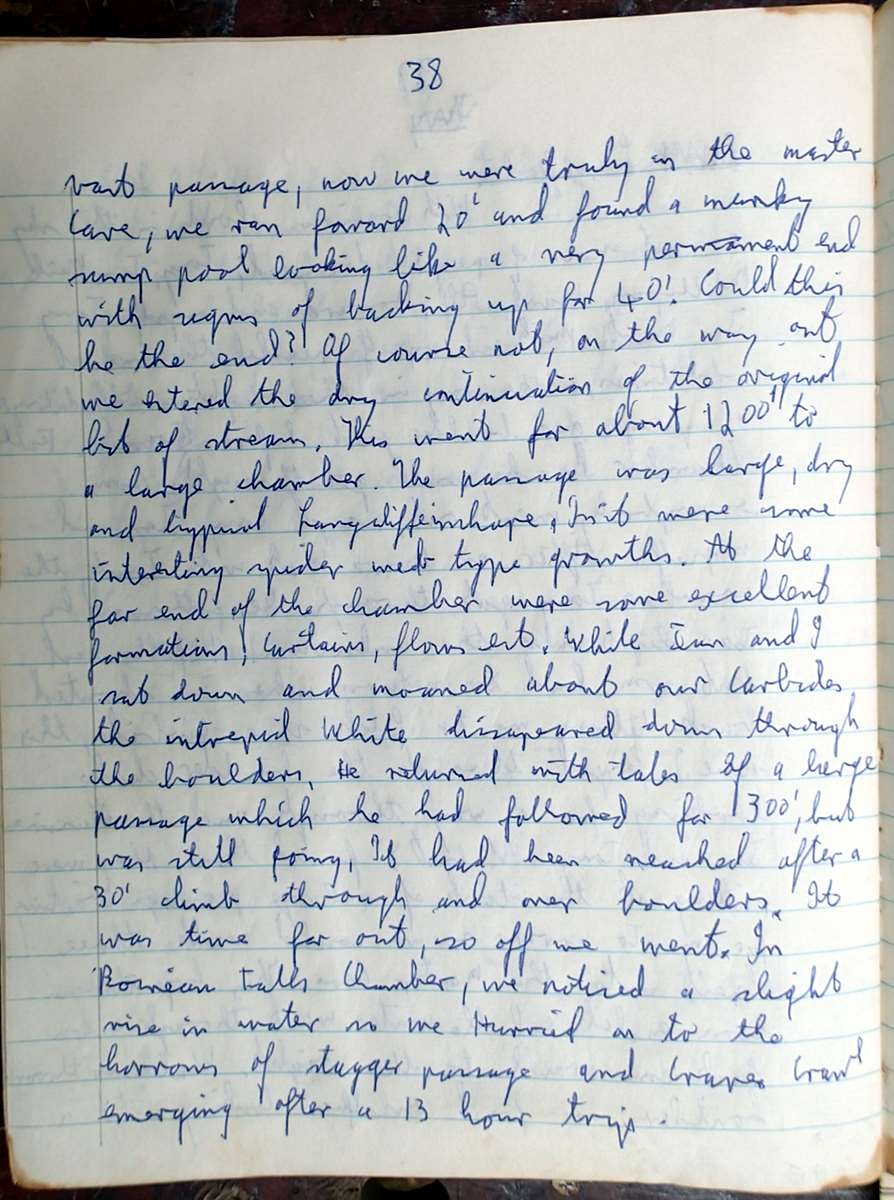 38
vast passage, now we were truly in the master
cave, we ran forward 20' and found a murky
sump pool looking like a very permanent end
with signs of backing up for 40'. Could this
be the end? Of course not, on the way out
we entered the dry continuation of the original
bit of stream. This went for about 1200' to
a large chamber. The passage was large, dry
and typical shape, In it were some
interesting spider web type growths. At the
far end of the chamber were some excellent
formations, Curtains, flows ect. While Ian and I
sat down and moaned about our Carbides
the intrepid White dissapeared down through
the boulders, He returned with tales of a large
passage which he had followed for 300', but
was still going, It had been reached after a
30' climb through and over boulders. It
was time for out, so off we went. In
Falls Chamber, we noticed a slight
rise in water so we Hurried on to the
horrors of stagger passage and Crawl
emerging after a 13 hour trip.